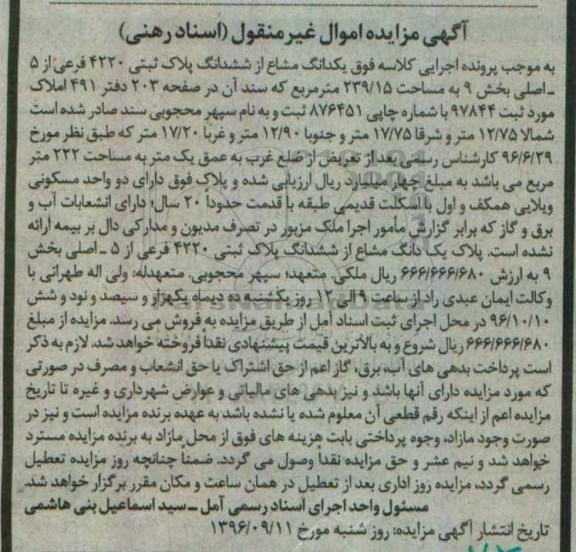 آگهی مزایده اموال غیرمنقول (اسناد رهنی)
به موجب پرونده اجرایی کلاسه فوق یکدانگ مشاع از ششدانگ پلاک ثبتی ۴۲۲۰ فرعی از ۵
ـ اصلی بخش ۹ به مساحت ۲۳۹/۱۵ مترمربع که سند آن در صفحه ۲۰۳ دفتر ۴۹۱ املاک
مورد ثبت ۹۷۸۴۴ با شماره چاپی ۸۷۶۴۵۱ ثبت و به نام سپهر محجوبی سند صادر شده است
شمالا ۱۲/۷۵ متر و شرقا ۱۷/۷۵ متر و جنوبا ۱۲/۹۰ متر و غربا ۱۷/۲۰ متر که طبق نظر مورخ
۹۶/۶/۲۹ کارشناس رسمی بعد از تعریض از ضلع غرب به عمق یک متر به مساحت ۲۲۲ متر
مربع می باشد به مبلغ چهار میلیارد ریال ارزیابی شده و پلاک فوق دارای دو واحد مسکونی
ویلایی همکف و اول با اسکلت قدیمی طبقه با قدمت حدوداً ۲۰ سال؛ دارای انشعابات آب و
برق و گاز که برابر گزارش مأمور اجرا ملک مزبور در تصرف مدیون و مدارکی دال بر بیمه ارائه
نشده است. پلاک یک دانگ مشاع از ششدانگ پلاک ثبتی ۴۲۲۰ فرعی از ۵ ـ اصلی بخش
۹ به ارزش ۶۶۶/۶۶۶/۶۸۰ ریال ملکی. متعهد؛ سپهر محجوبی. متعهدله؛ ولی اله طهرانی با
وکالت ایمان عبدی راد از ساعت ۹ الی ۱۲ روز یکشنبه ده دیماه یکهزار و سیصد و نود و شش
۹۶/۱۰/۱۰ در محل اجرای ثبت اسناد آمل از طریق مزایده به فروش می رسد. مزایده از مبلغ
۶۶۶/۶۶۶/۶۸۰ ریال شروع و به بالاترین قیمت پیشنهادی نقداً فروخته خواهد شد. لازم به ذکر
است پرداخت بدهی های آب، برق، گاز اعم از حق اشتراک یا حق انشعاب و مصرف در صورتی
که مورد مزایده دارای آنها باشد و نیز بدهی های مالیاتی و عوارض شهرداری و غیره تا تاریخ
مزایده اعم از اینکه رقم قطعی آن معلوم شده یا نشده باشد به عهده برنده مزایده است و نیز در
صورت وجود مازاد، وجوه پرداختی بابت هزینه های فوق از محل مازاد به برنده مزایده مسترد
خواهد شد و نیم عشر و حق مزایده نقداً وصول می گردد. ضمنا چنانچه روز مزایده تعطیل
رسمی گردد، مزایده روز اداری بعد از تعطیل در همان ساعت و مکان مقرر برگزار خواهد شد.
مسئول واحد اجرای اسناد رسمی آمل ـ سید اسماعیل بنی هاشمی
تاریخ انتشار آگهی مزایده: روز شنبه مورخ ۱۳۹۶/۰۹/۱۱